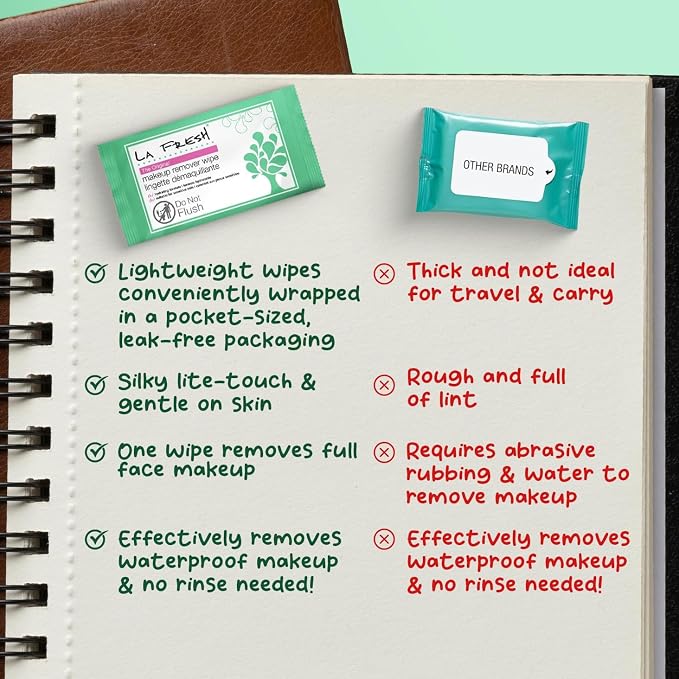 LA FRESH
The Original
makeup remover wipe
lingette démaquillante
Do Not
Flush
OTHER BRANDS
Lightweight wipes
conveniently wrapped
in a pocket-sized,
leak-free packaging
Thick and not ideal
for travel & carry
Silky lite-touch &
gentle on skin
Rough and full
of lint
One wipe removes full
face makeup
Requires abrasive
rubbing & water to
remove makeup
Effectively removes
waterproof makeup
& no rinse needed!
Effectively removes
waterproof makeup
& no rinse needed!